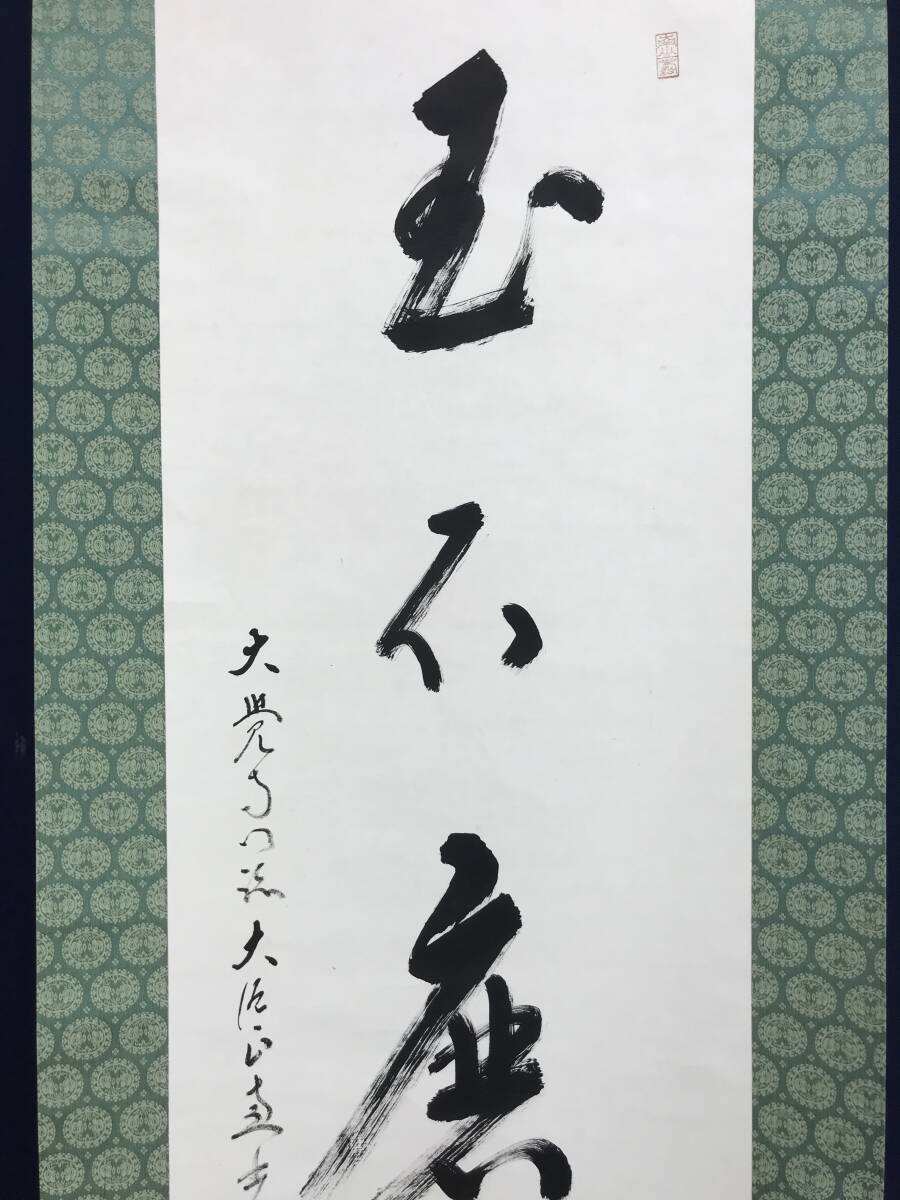 玉不磨
大覺寺門跡大僧正恵